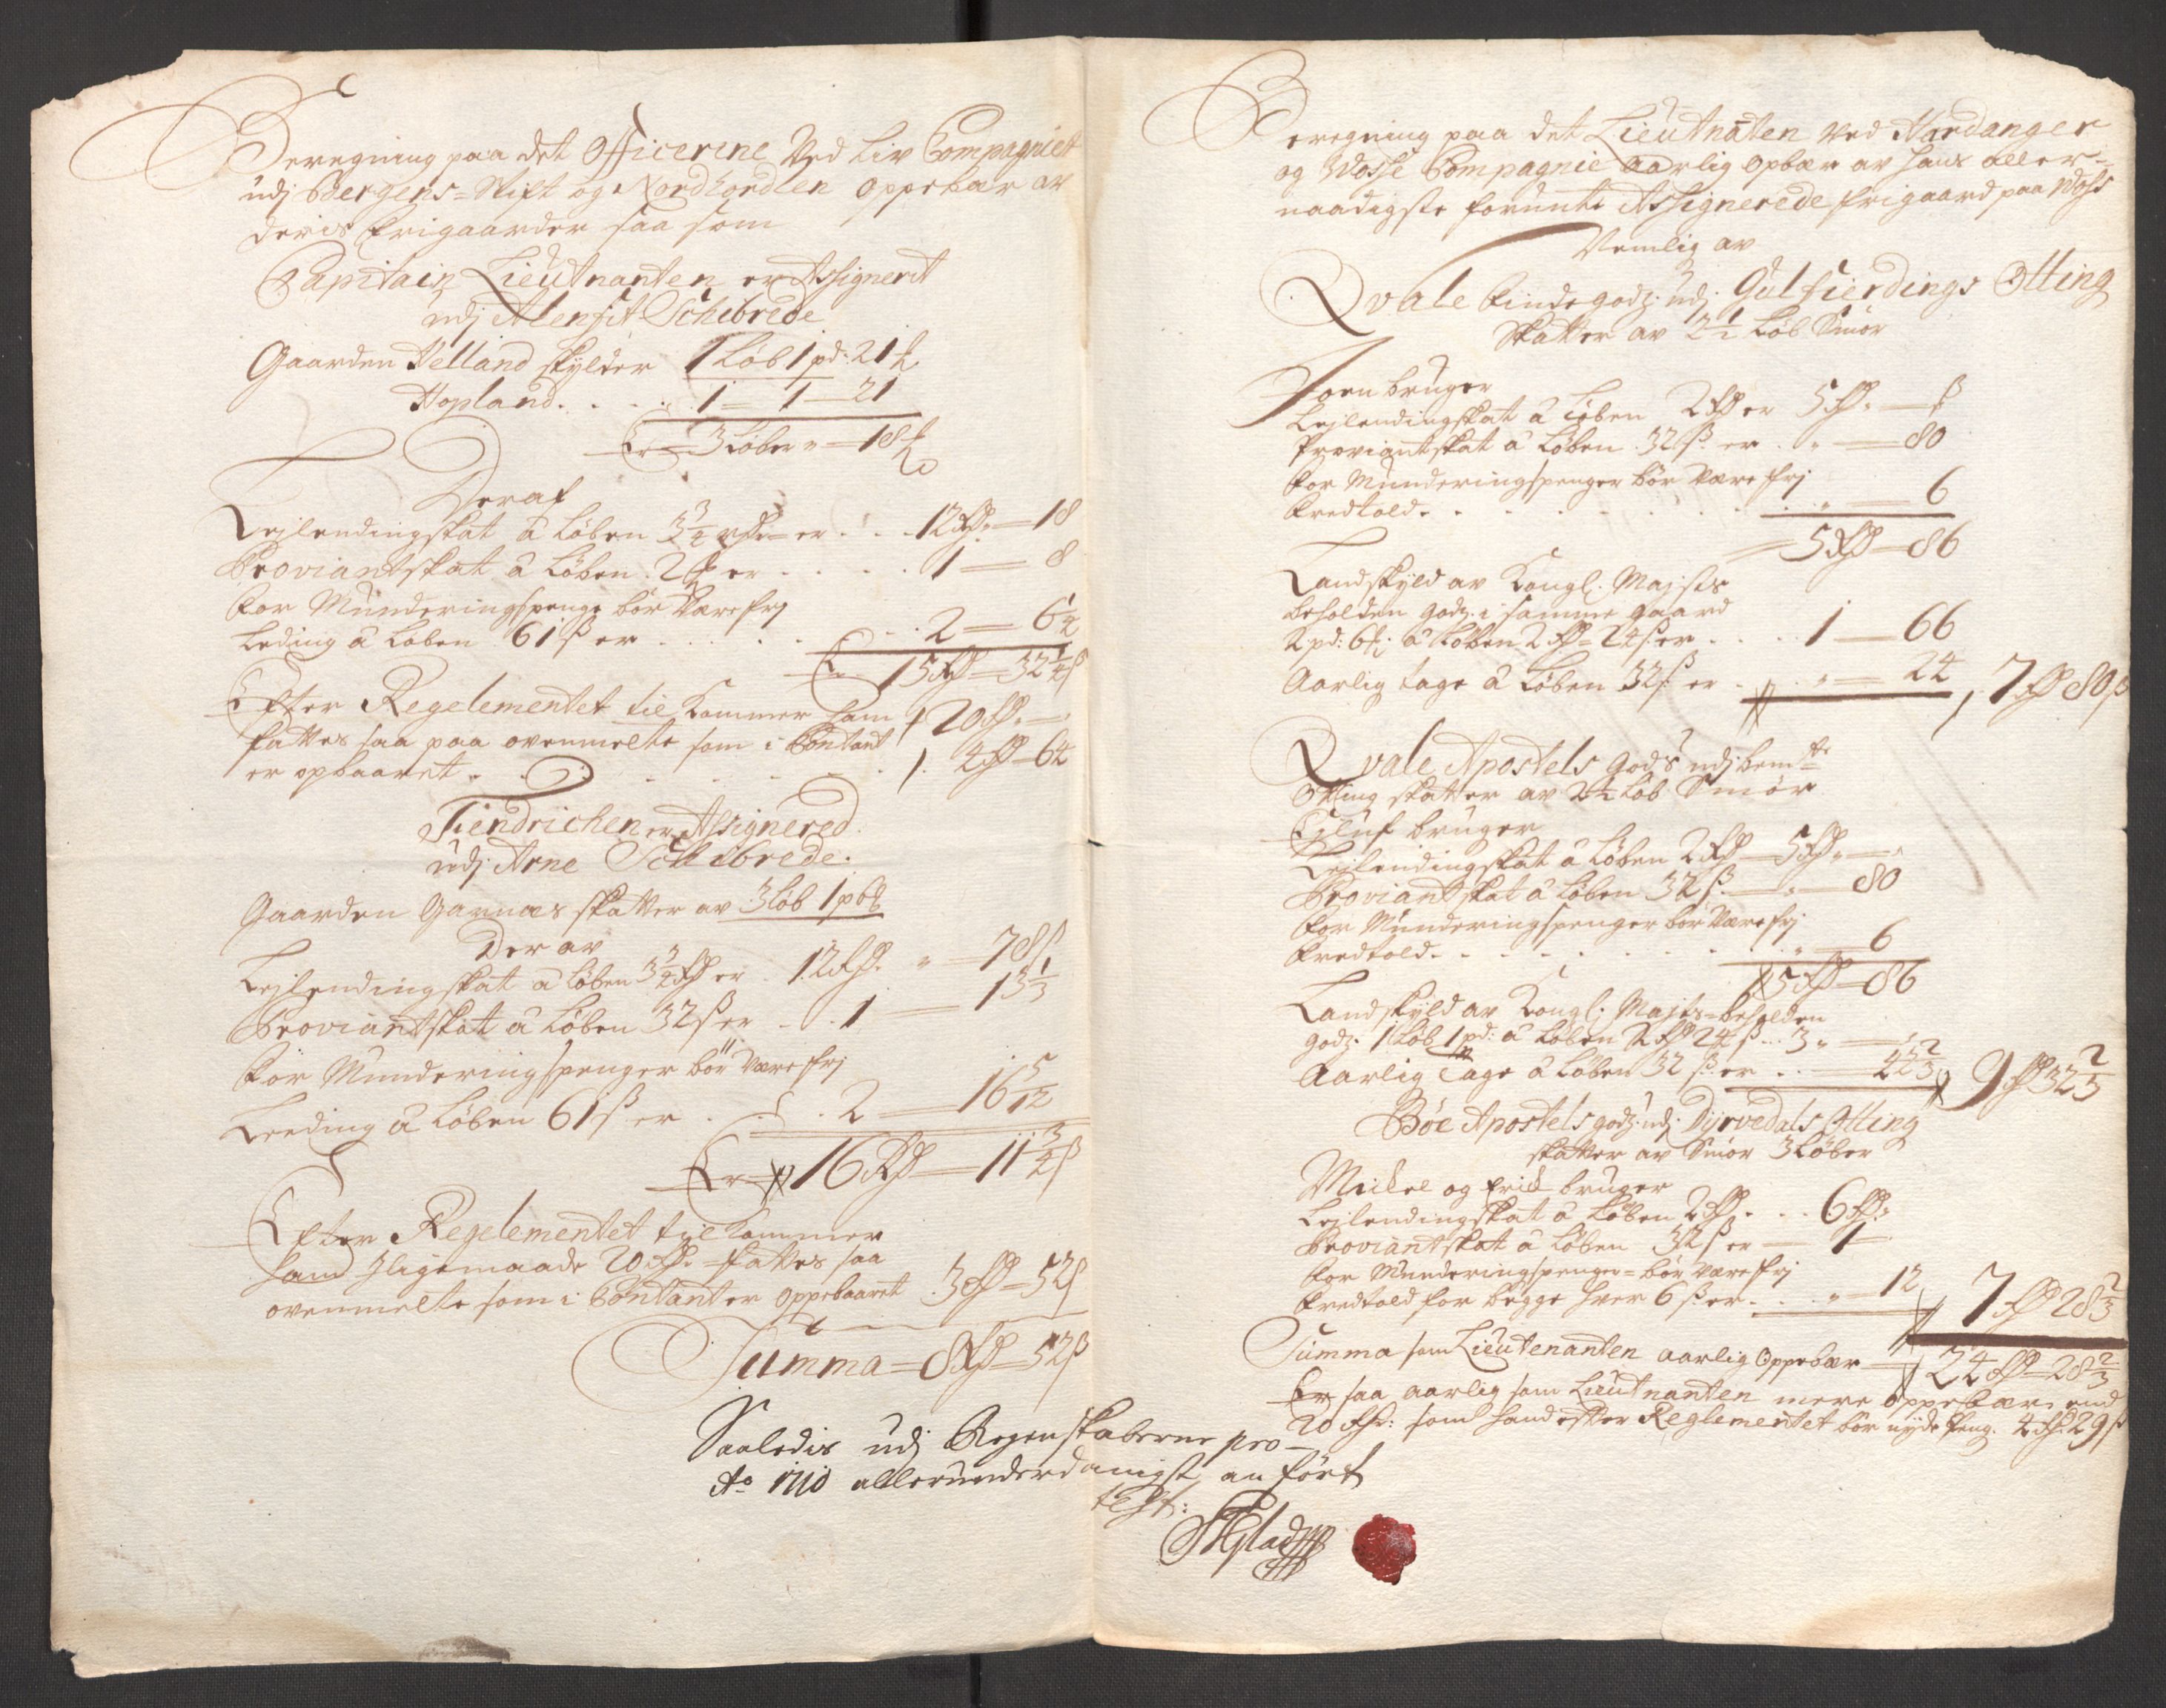 Beregning paa det Officerine Ved Liv Compagniet
udj Bergens-Stift og Nordhordlen oppebær av
deris frigaarder saa som
Capitain Lieutnanten er Assignerit
udj Alensit Schibrede
Gaarden Helland skylder 1 Løb 1 pd: 21
Hopland . . . . . 1 - 1 - 21
Er - 3 Løber „ - 18
Deraf
Lejlendingskat á Løben 3 3/4 rdr er . . . 12 Rdr - 18
Proviantskat á Løben 2 er . . . . 1 - 8
For Munderingspenge bør Være frj
Leding á Løben 61 ß er . . . . . 2 - 6 1/4
Er 15 Rdr - 32 1/4 ß
Efter Regelementet til Kommer ham 20 Rdr -
fattes saa paa ovenmelte som i Contant
er opbaaret . . . . . . 4 Rdr - 64
Fendrichen er Assignered
udj Arne Schibrede.
Gaarden Garnæs skatter av 3 Løb 1 pd 6
Der av
Lejlendingskat á Løben 3 3/4 Rdr er 12 Rdr „ - 78 ß
Proviantskat á Løben 32 ß er . . 1 - 13 1/3
For Munderingspenger bør Være frj
Leeding á Løben 61 ß er . . . 2 - 16 5/12
Er 16 Rdr - 11 3/4 ß
Efter Regelementet til Kommer
hand Jligemaade 20 Rdr - fattes saa
ovenmelte som i Contant er oppebaaret 3 Rdr - 52 ß
Summa - 8 Rdr - 52 ß
Beregning paa det Lieutnaten Ved Hardanger
og Wosse Compagnie aarlig opbær av hans aller-
naadigste forunte Assignerede frigaard paa Woss
Nemlig av
Qvale Kindegodz udj Gulfierdings Otting
Skatter av 2 1/2 Løb Smør
Joen bruger
Lejlendingskat á Løben 2 Rdr er 5 Rdr - ß
Proviantskat á Løben 32 ß er . „ - 80
For Munderingspenger bør Være frj
Fredtold . . . . . . . „ - 6
5 Rdr - 86
Landskyld av Kongl: Majsts
beholden godz i samme gaard
2 pd: 6 á Løben 2 Rdr - 24 ß er . . . 1 - 66
Aarlig tage á Løben 32 ß er . . . „ - 24 7 Rdr 80 ß
Qvale Apostels Gods udj bemte
Otting skatter av 2 1/2 Løb Smør
Eluf bruger
Lejlendingskat á Løben 2 Rdr - 5 Rdr „ -
Proviantskat á Løben 32 ß - „ - 80
For Munderingspenger bør Være frj
Fredtold . . . . . . . „ - 6
5 Rdr - 86
Landskyld av Kongl: Majts - beholden
godz. 1 Løb 1 pd: á Løben 2 Rdr 24 ß . . 3 „ -
Aarlig Tage á Løben 32 ß er . . - 42 2/3 9 Rdr 32 2/3
Bøe Apostels godz udj Dyrvedals Otting
skatter av Smør 3 Løber
Mickel og Erick bruger
Lejlendingskat á Løben 2 Rdr . . . 6 Rdr
Proviantskat á Løben 32 ß er - 1 -
For Munderingspenger - bør Være frj
Fredtold for begge hver 6 ß er . . . „ - 12 7 Rdr 28 2/3
Summa som Lieutenanten aarlig Oppebær - 24 Rdr - 28 2/3
Er saa aarlig som Lieutnanten mere oppebær, end
20 Rdr: som hand efter Reglementet bør nyde Peng. 4 Rdr 29 ß
Saaledis udj Regenskaberne pro -
Ao 1710 allerunderdanigst an ført
test: